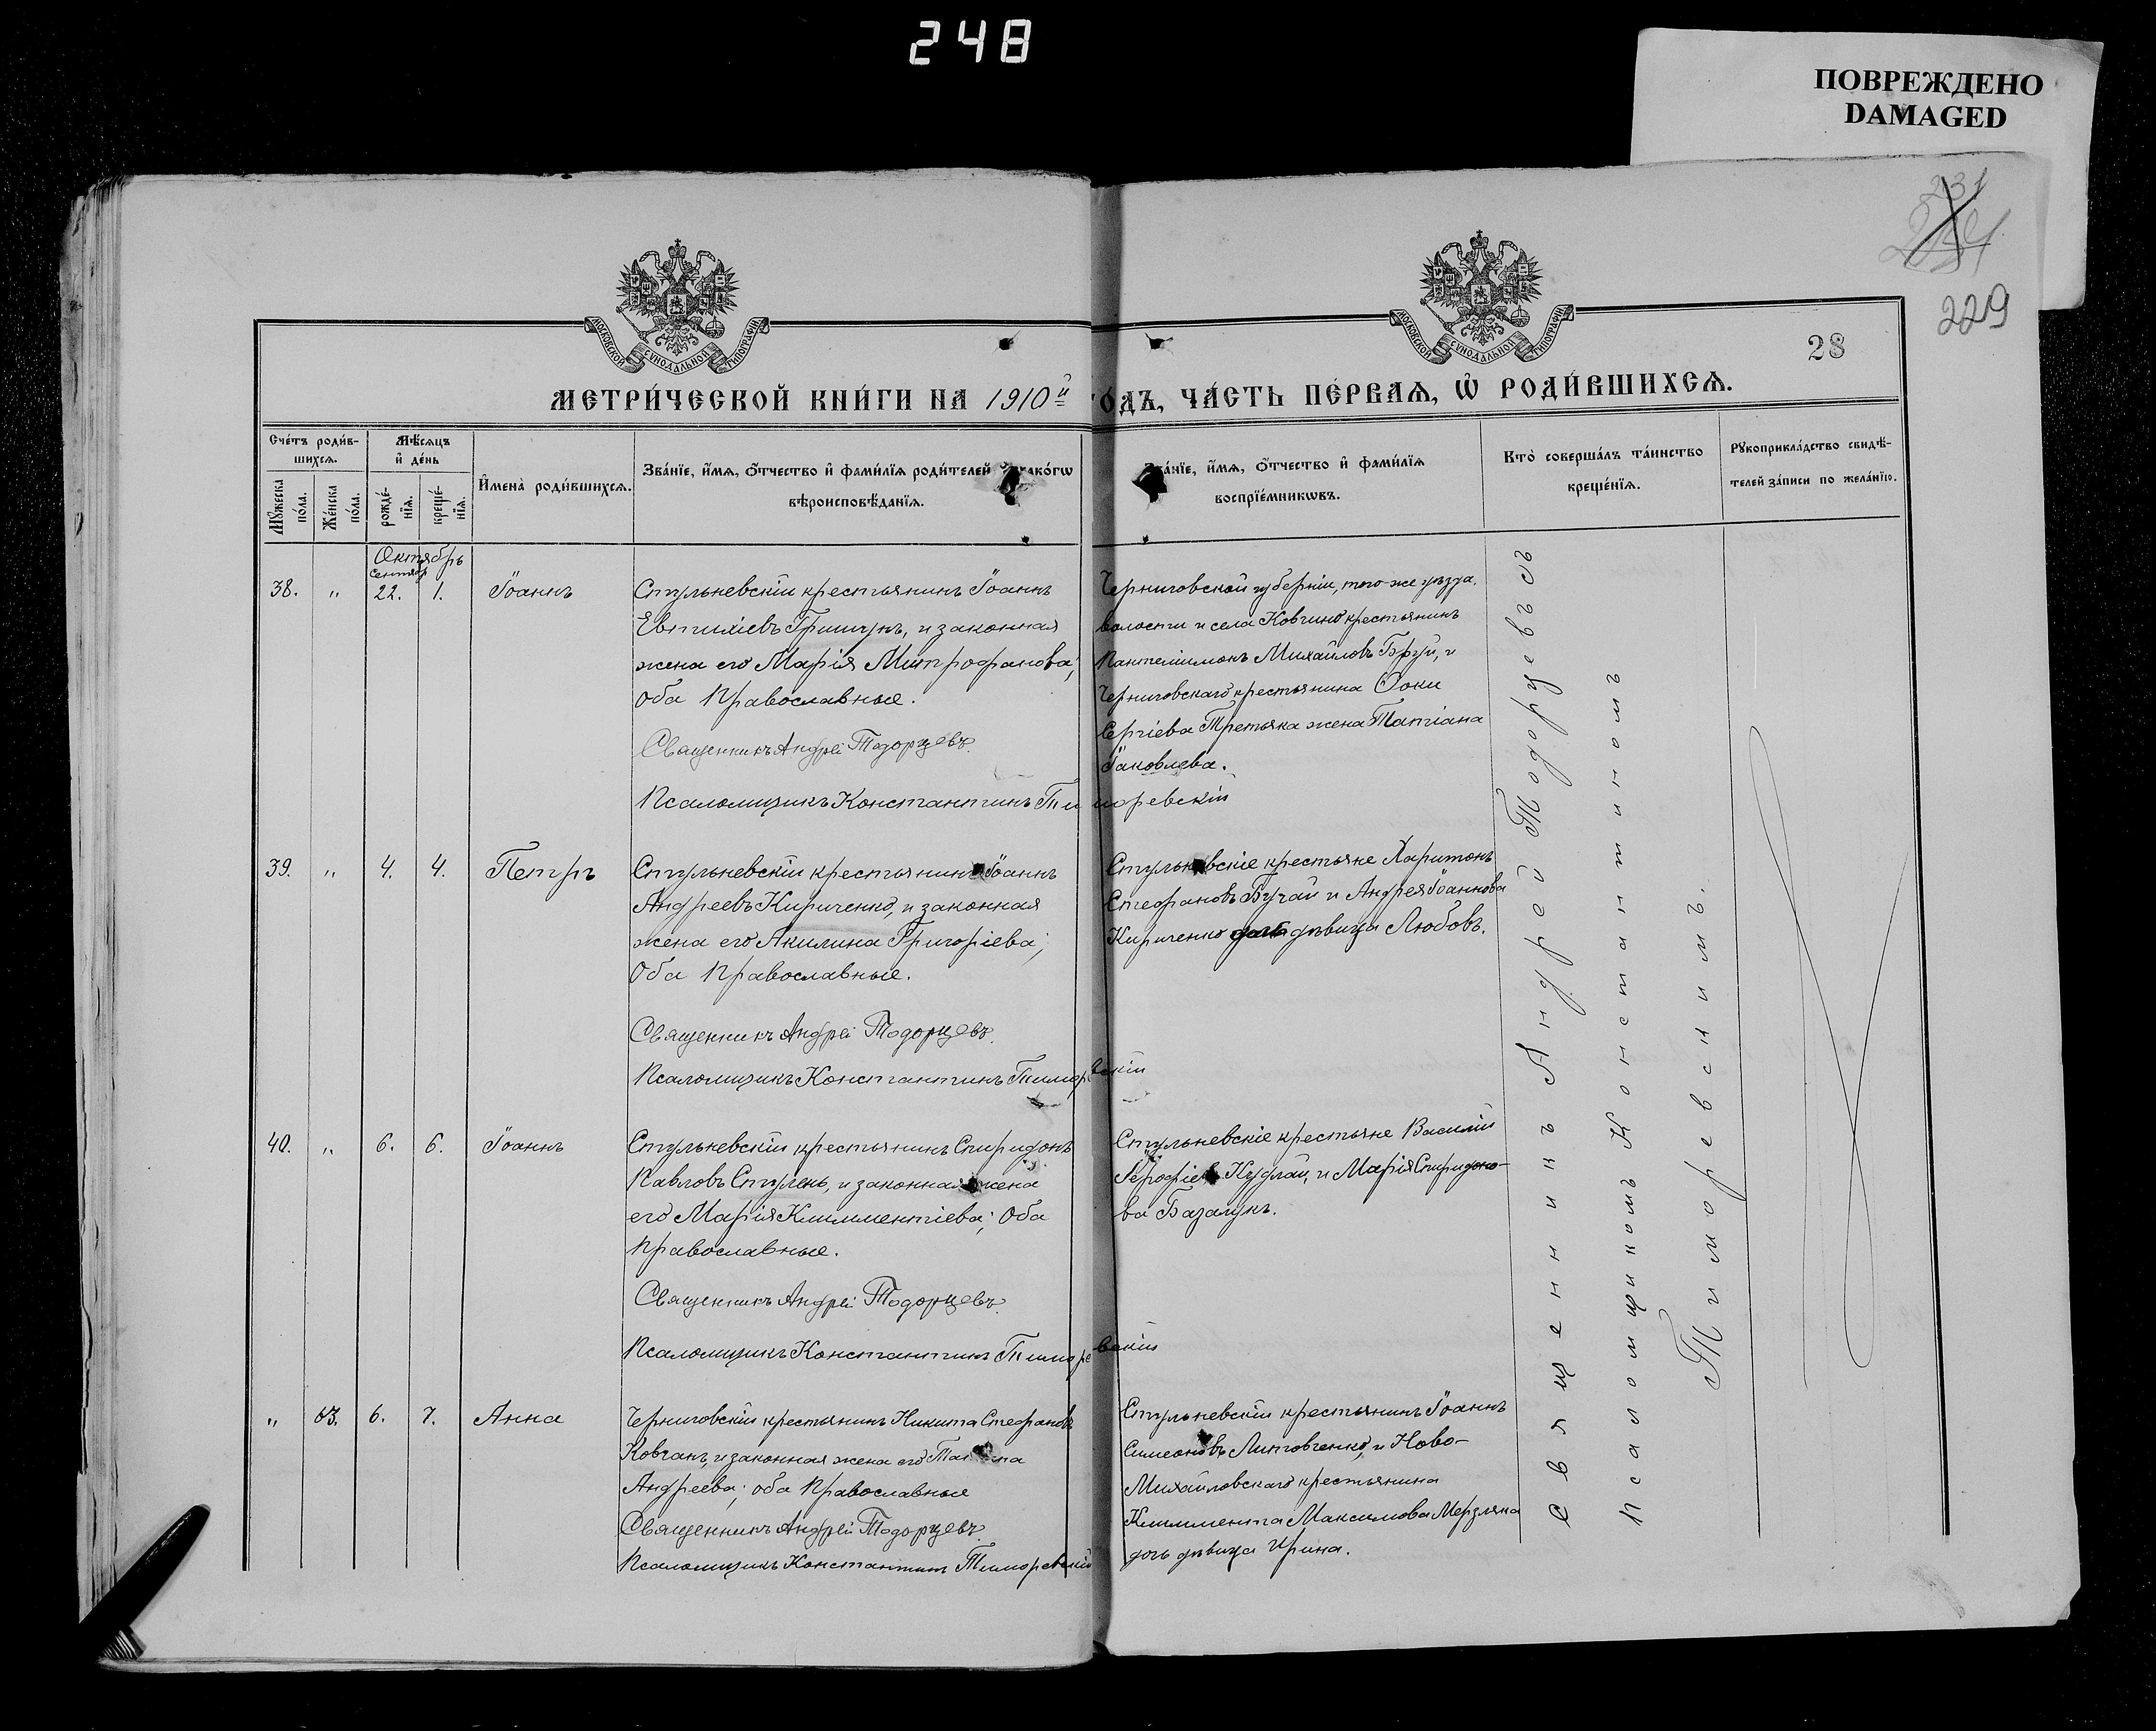 248
ПОВРЕЖДЕНО
DAMAGED
231
229
28
МОСКОВСКОЙ СѴНОДАЛЬНОЙ ТИПОГРАФІИ
МОСКОВСКОЙ СѴНОДАЛЬНОЙ ТИПОГРАФІИ
МЕТРИ́ЧЕСКОЙ КНИ́ГИ НА 1910й ГОДЪ, ЧА́СТЬ ПЕ́РВАѦ, Ѡ҆ РОДИ́ВШИХСѦ.
Сче́тъ роди́в-
шихсѧ.
Мѣ́сѧцъ
и҆ де́нь
Мꙋ́жеска
по́ла.
Же́нска
по́ла.
рожде́-
нїѧ.
креще́-
нїѧ.
И҆мена̀ роди́вшихсѧ.
Зва́нїе, и҆́мѧ, ѻ҆́тчество и҆ фами́лїѧ роди́телей какогѡ
вѣроисповѣ́данїѧ.
Зва́нїе, и҆́мѧ, ѻ҆́тчество и҆ фами́лїѧ
воспрїе́мникѡвъ.
Кто̀ соверша́лъ та́инство
креще́нїѧ.
Рꙋкоприкла́дство свидѣ́-
телей за́писи по жела́нїю.
Октябрь
Сентяб.
38. „ 22. 1. Іоаннъ
Стульневскій крестьянинъ Іоаннъ
Евтихіевъ Гришунъ, и законная
жена его Марія Митрофанова,
оба Православные.
Священникъ Андрей Тодорцевъ
Псаломщикъ Константинъ Тиморевскій
Черниговской губерніи, того-же уѣзда,
волости и села Ковчино крестьянинъ
Пантелиимонъ Михайловъ Бруй, и
Черниговскаго крестьянина Ѳоки
Сергіева Третьяка жена Татіана
Іаковлева.
39. „ 4. 4. Петръ
Стульневскій крестьянинъ Іоаннъ
Андреевъ Кириченко, и законная
жена его Акилина Григоріева;
Оба Православные.
Священникъ Андрей Тодорцевъ
Псаломщикъ Константинъ Тиморевскій
Стульневскіе крестьяне Харитонъ
Стефановъ Бугай и Андрея Іоаннова
Кириченко дѣвица Любовь.
40. „ 6. 6. Іоаннъ
Стульневскій крестьянинъ Спиридонъ
Павловъ Стулень, и законная жена
его Марія Климментіева; Оба
Православные.
Священникъ Андрей Тодорцевъ
Псаломщикъ Константинъ Тиморевскій
Стульневскіе крестьяне Василій
Іерофіевъ Кудлай, и Марія Спиридоно-
ва Базалукъ.
„ 83. 6. 7. Анна
Черниговскій крестьянинъ Никита Стефановъ
Ковганъ, и законная жена его
Андреева; оба Православные
Священникъ Андрей Тодорцевъ
Псаломщикъ Константинъ Тиморевскій
Стульневскій крестьянинъ Іоаннъ
Симеоновъ Литовченко, и Ново-
Михайловскаго крестьянина
Климмента Максимова Мерзляка
дочь дѣвица Ирина.
Священникъ Андрей Тодорцевъ съ
псаломщикомъ Константиномъ
Тиморевскимъ.